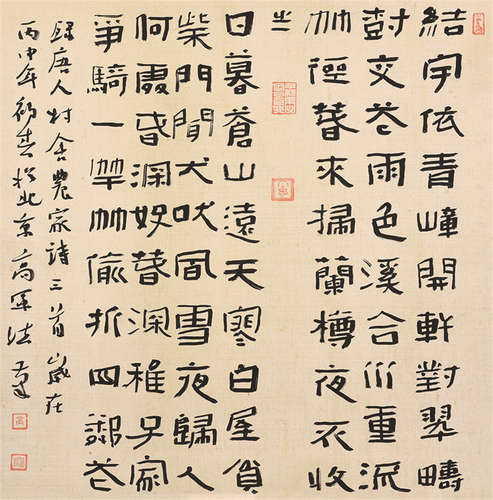 結宇依青嶂開軒對翠疇
樹交花雨色溪合水重流
竹徑春來掃蘭樽夜不收
日暮蒼山遠天寒白屋貧
柴門聞犬吠風雪夜歸人
何處春深好春深稚子家
爭騎一竿竹偷折四鄰花
録唐人村舍農家詩三首歲在
丙申年初春於北京高軍法